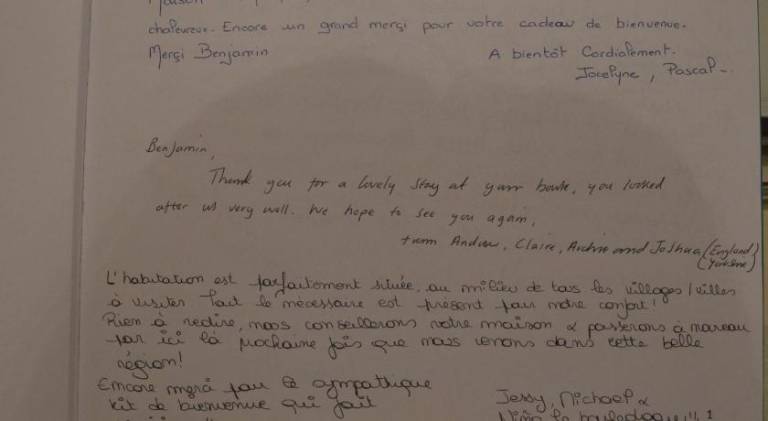 Maison
chaleureux. Encore un grand merçi pour votre cadeau de bienvenue.
Merçi Benjamin
A bientôt Cordialement.
Jocelyne, Pascal
Benjamin,
Thank you for a lovely stay at your house, you looked
after us very well. We hope to see you again,
from Andrew, Claire, Archie and Joshua (England)
(Yorkshire)
L'habitation est parfaitement située, au milieu de tous les villages / villes
à visiter Tout le nécessaire est présent pour notre confort!
Rien à redire, nous conseillerons votre maison & passerons à nouveau
par ici la prochaine fois que nous venons dans cette belle
région!
Encore merci pour le sympathique
kit de bienvenue qui fait
Jessy, Michael &